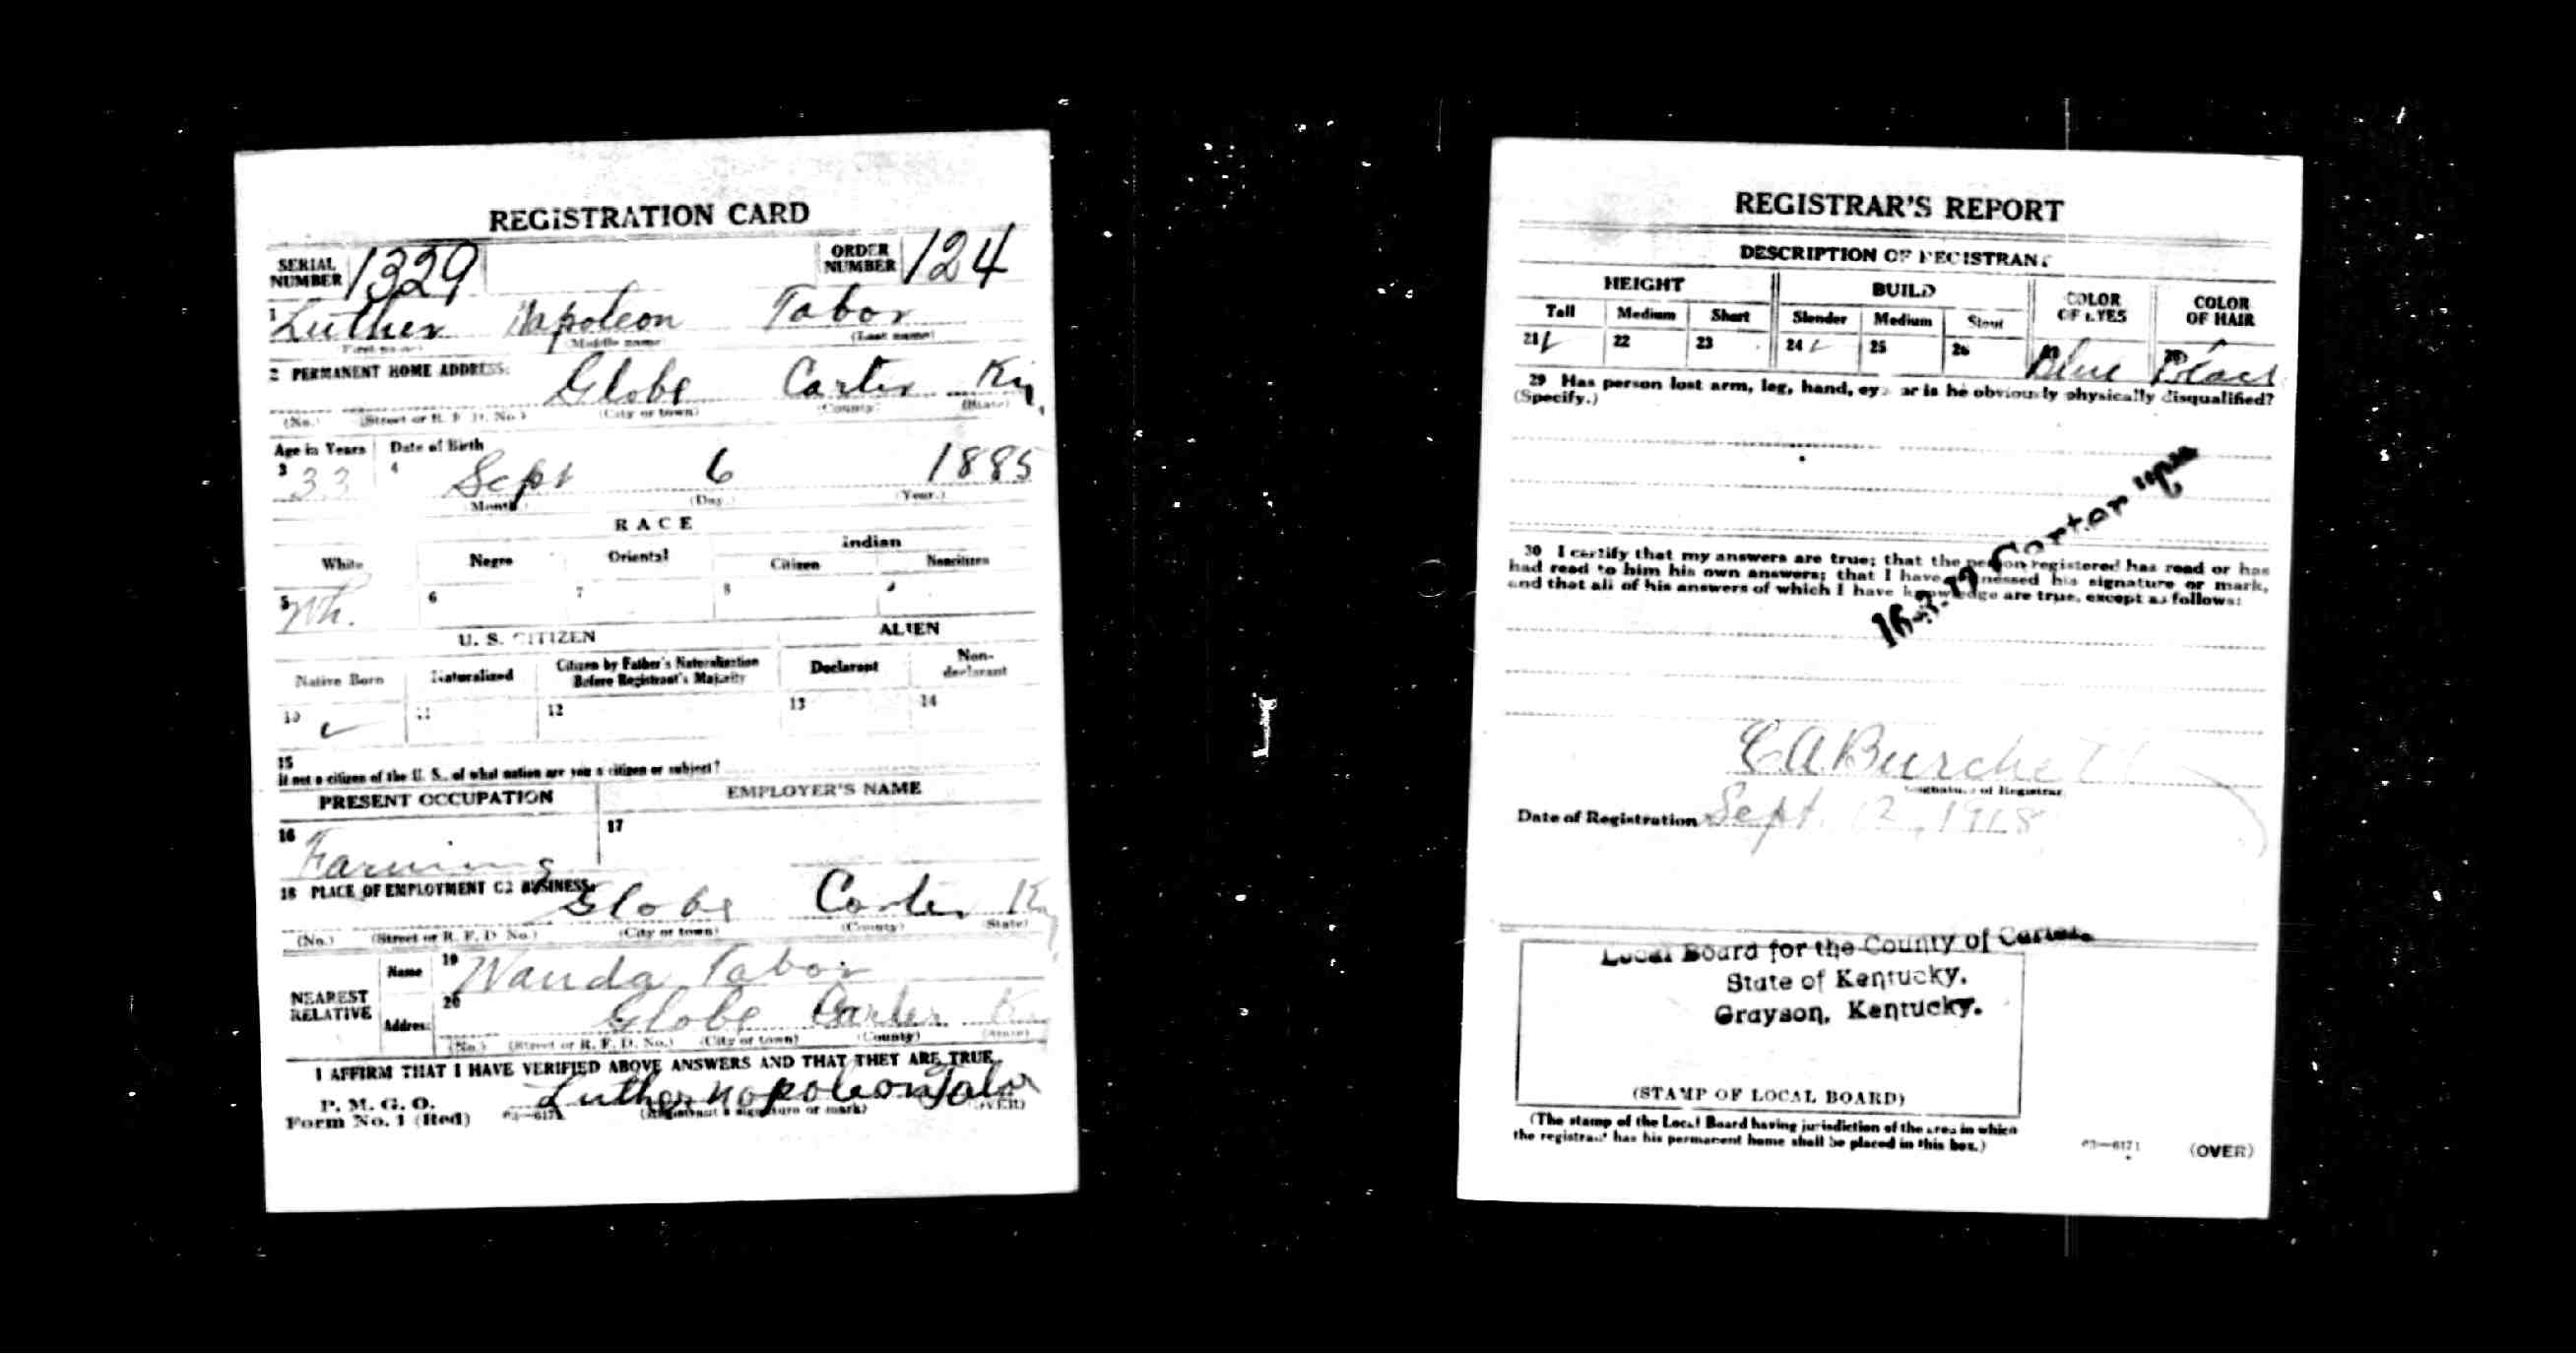 REGISTRATION CARD
SERIAL NUMBER 1329 ORDER NUMBER 124
1 Luther Napoleon Tabor
(First name) (Middle name) (Last name)
2 PERMANENT HOME ADDRESS:
Globe Carter Ky
(No.) (Street or R. F. D. No.) (City or town) (County) (State)
Age in Years Date of Birth
3 33 4 Sept 6 1885
(Month.) (Day.) (Year.)
RACE
White Negro Oriental Indian
Citizen Noncitizen
5 Wh. 6 7 8 9
U. S. CITIZEN ALIEN
Native Born Naturalized Citizen by Father's Naturalization Before Registrant's Majority Declarant Non-declarant
10 ✓ 11 12 13 14
15
If not a citizen of the U. S., of what nation are you a citizen or subject?
PRESENT OCCUPATION EMPLOYER'S NAME
16 Farming 17
18 PLACE OF EMPLOYMENT OR BUSINESS:
Globe Carter Ky
(No.) (Street or R. F. D. No.) (City or town) (County) (State)
NEAREST RELATIVE
Name 19 Wanda Tabor
Address 20 Globe Carter Ky
(No.) (Street or R. F. D. No.) (City or town) (County) (State)
I AFFIRM THAT I HAVE VERIFIED ABOVE ANSWERS AND THAT THEY ARE TRUE.
P. M. G. O.
Form No. 1 (Red) 03—6171 Luther Napoleon Tabor
(Registrant's signature or mark) (OVER)
REGISTRAR'S REPORT
DESCRIPTION OF REGISTRANT
HEIGHT BUILD COLOR OF EYES COLOR OF HAIR
Tall Medium Short Slender Medium Stout
21 ✓ 22 23 24 ✓ 25 26 27 Blue 28 Black
29 Has person lost arm, leg, hand, eye, or is he obviously physically disqualified?
(Specify.)
30 I certify that my answers are true; that the person registered has read or has
had read to him his own answers; that I have witnessed his signature or mark,
and that all of his answers of which I have knowledge are true, except as follows:
Carter
E A Burchett
(Signature of Registrar)
Date of Registration Sept. 12, 1918
Local Board for the County of Carter.
State of Kentucky.
Grayson, Kentucky.
(STAMP OF LOCAL BOARD)
(The stamp of the Local Board having jurisdiction of the area in which
the registrant has his permanent home shall be placed in this box.)
03—6171 (OVER)